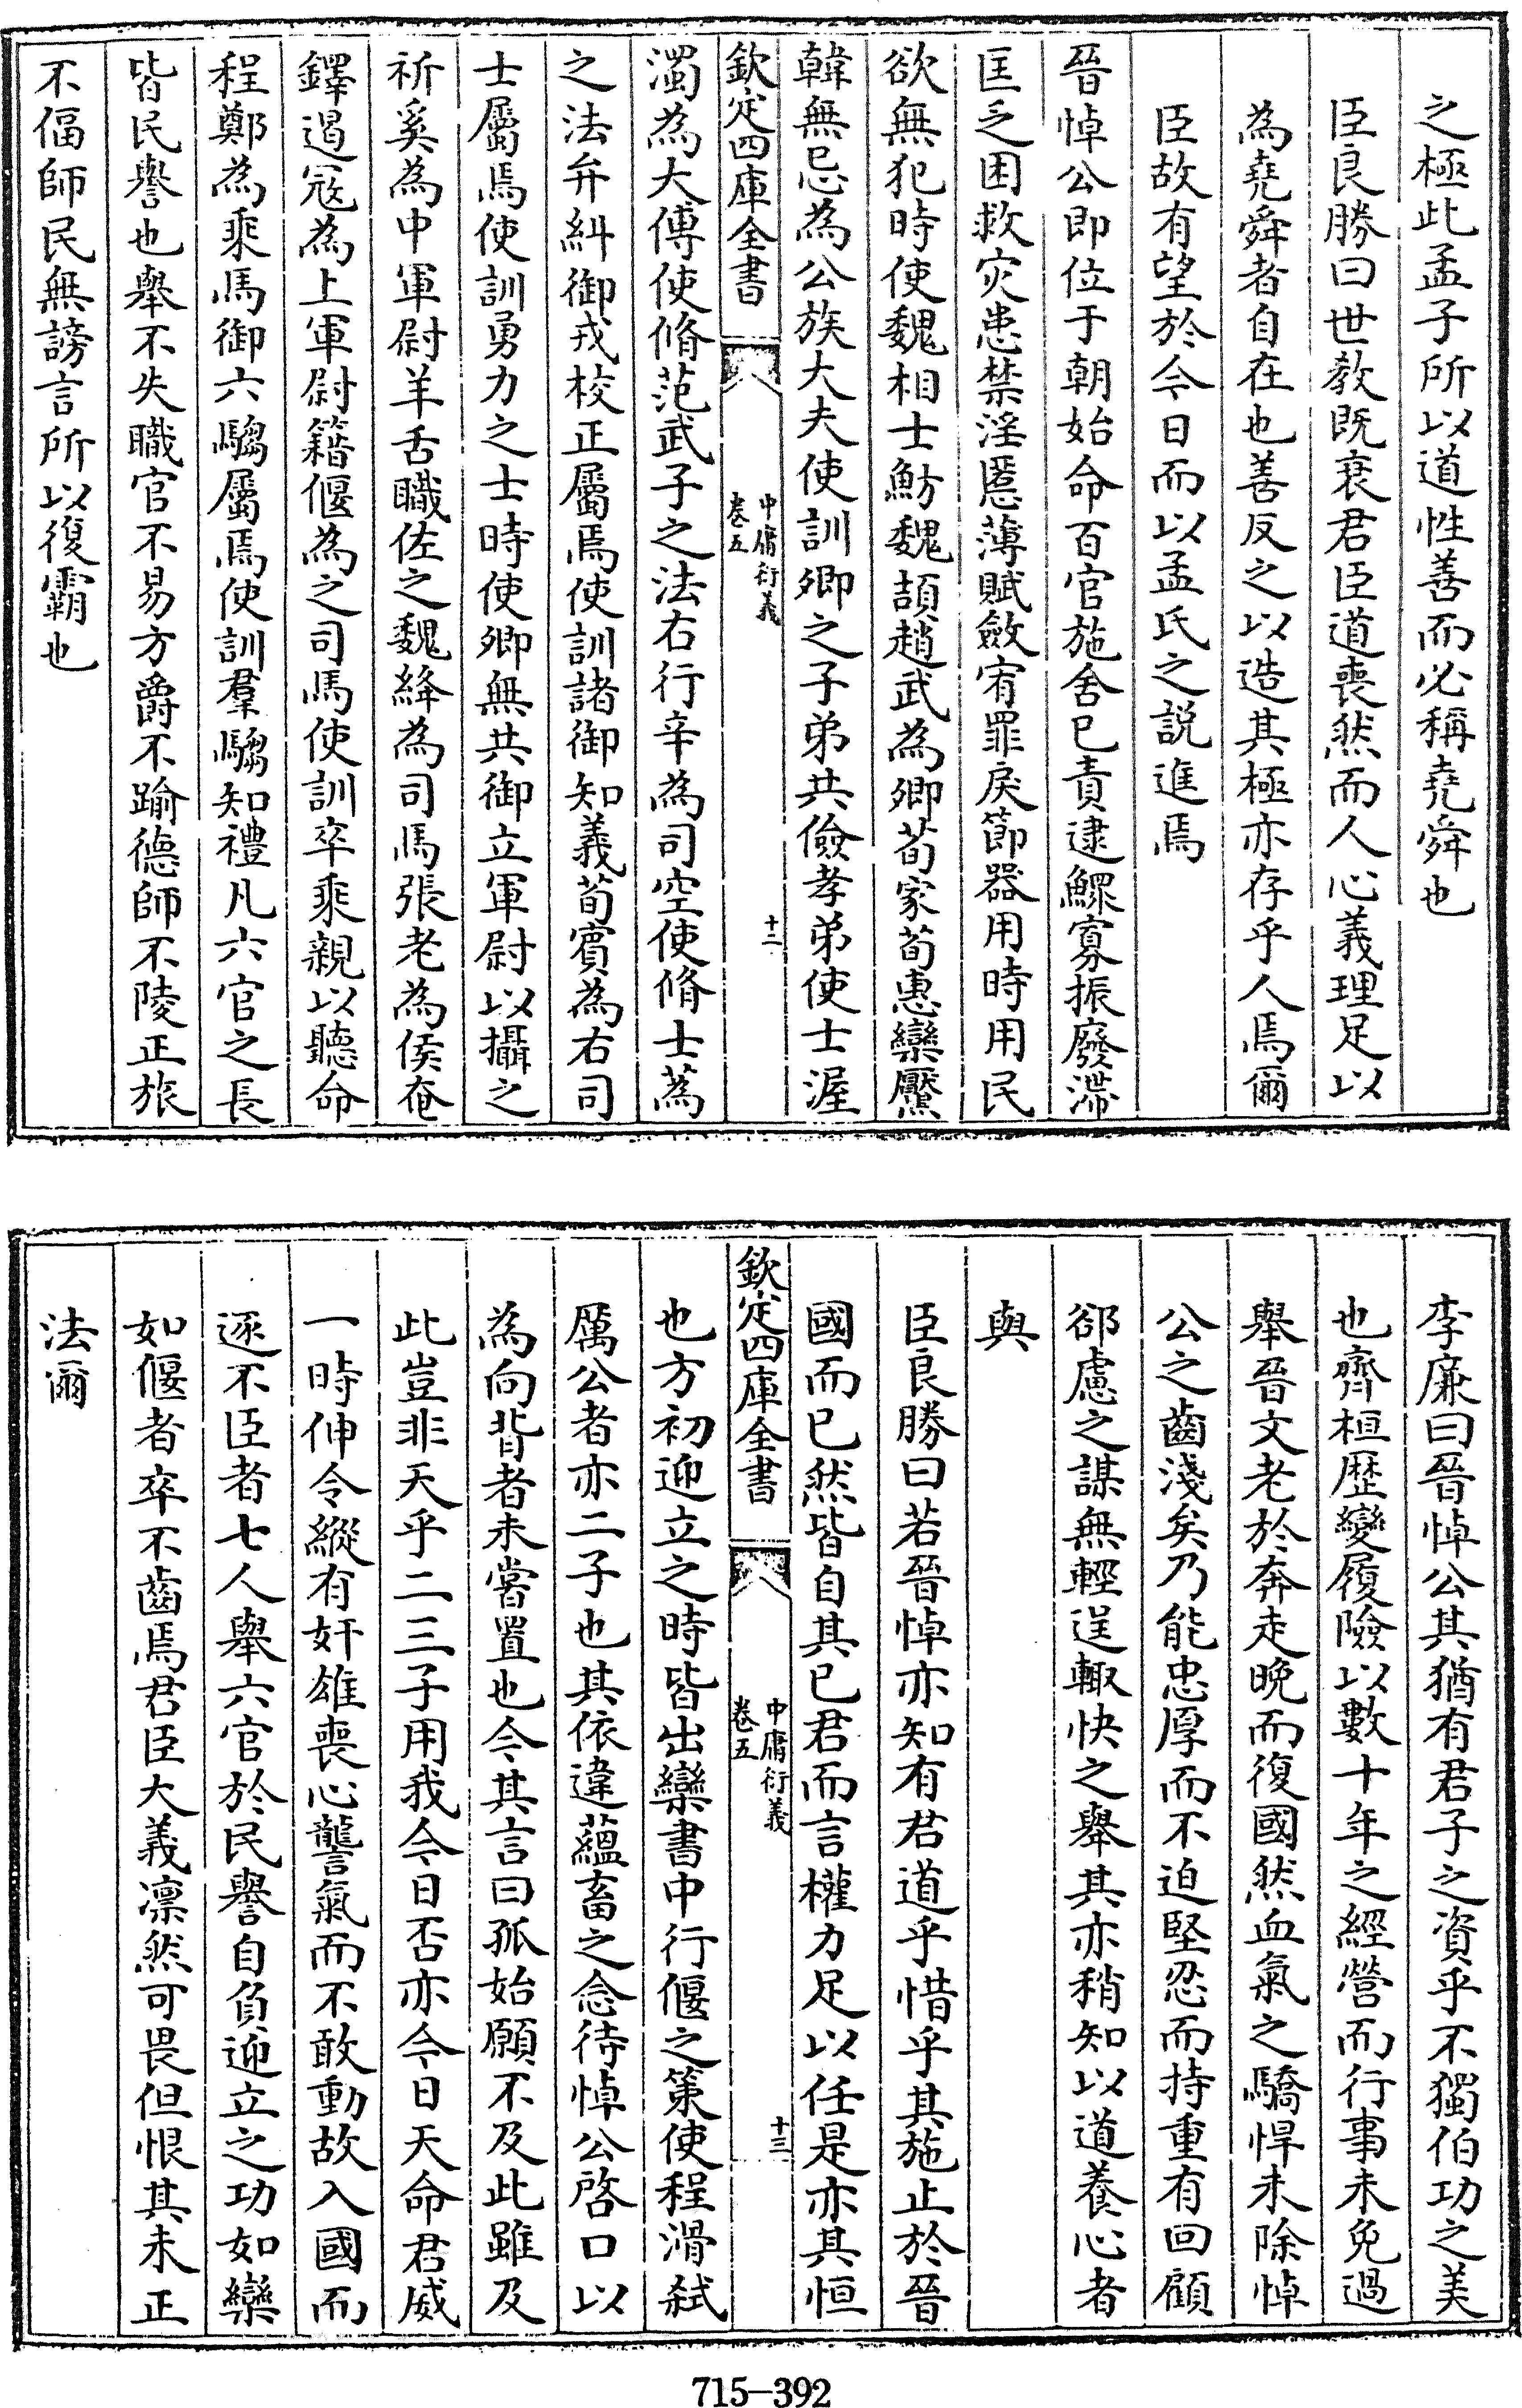 之極此孟子所以道性善而必稱堯舜也
臣良勝曰世教既衰君臣道喪然而人心義理足以
為堯舜者自在也善反之以造其極亦存乎人焉爾
臣故有望於今日而以孟氏之説進焉
晉悼公即位于朝始命百官施舍已責逮鰥寡振廢滯
匡乏困救灾患禁淫慝薄賦斂宥罪戾節器用時用民
欲無犯時使魏相士魴魏頡趙武為卿荀家荀惠欒黶
韓無忌為公族大夫使訓卿之子弟共儉孝弟使士渥
欽定四庫全書
中庸衍義
卷五
十二
濁為大傅使脩范武子之法右行辛為司空使脩士蒍
之法弁糾御戎校正屬焉使訓諸御知義荀賓為右司
士屬焉使訓勇力之士時使卿無共御立軍尉以攝之
祈奚為中軍尉羊舌職佐之魏絳為司馬張老為侯奄
鐸遏寇為上軍尉籍偃為之司馬使訓卒乘親以聽命
程鄭為乘馬御六騶屬焉使訓羣騶知禮凡六官之長
皆民譽也舉不失職官不易方爵不踰德師不陵正旅
不偪師民無謗言所以復霸也
李廉曰晉悼公其猶有君子之資乎不獨伯功之美
也齊桓歴變履險以數十年之經營而行事未免過
舉晉文老於奔走晚而復國然血氣之驕悍未除悼
公之齒淺矣乃能忠厚而不迫堅忍而持重有回顧
郤慮之謀無輕逞輙快之舉其亦稍知以道養心者
與
臣良勝曰若晉悼亦知有君道乎惜乎其施止於晉
國而已然皆自其已君而言權力足以任是亦其恒
欽定四庫全書
中庸衍義
卷五
十三
也方初迎立之時皆出欒書中行偃之策使程滑弑
厲公者亦二子也其依違蘊畜之念待悼公啓口以
為向背者未嘗置也今其言曰孤始願不及此雖及
此豈非天乎二三子用我今日否亦今日天命君威
一時伸令縱有奸雄喪心讋氣而不敢動故入國而
逐不臣者七人舉六官於民譽自負迎立之功如欒
如偃者卒不齒焉君臣大義凛然可畏但恨其未正
法爾
715-392